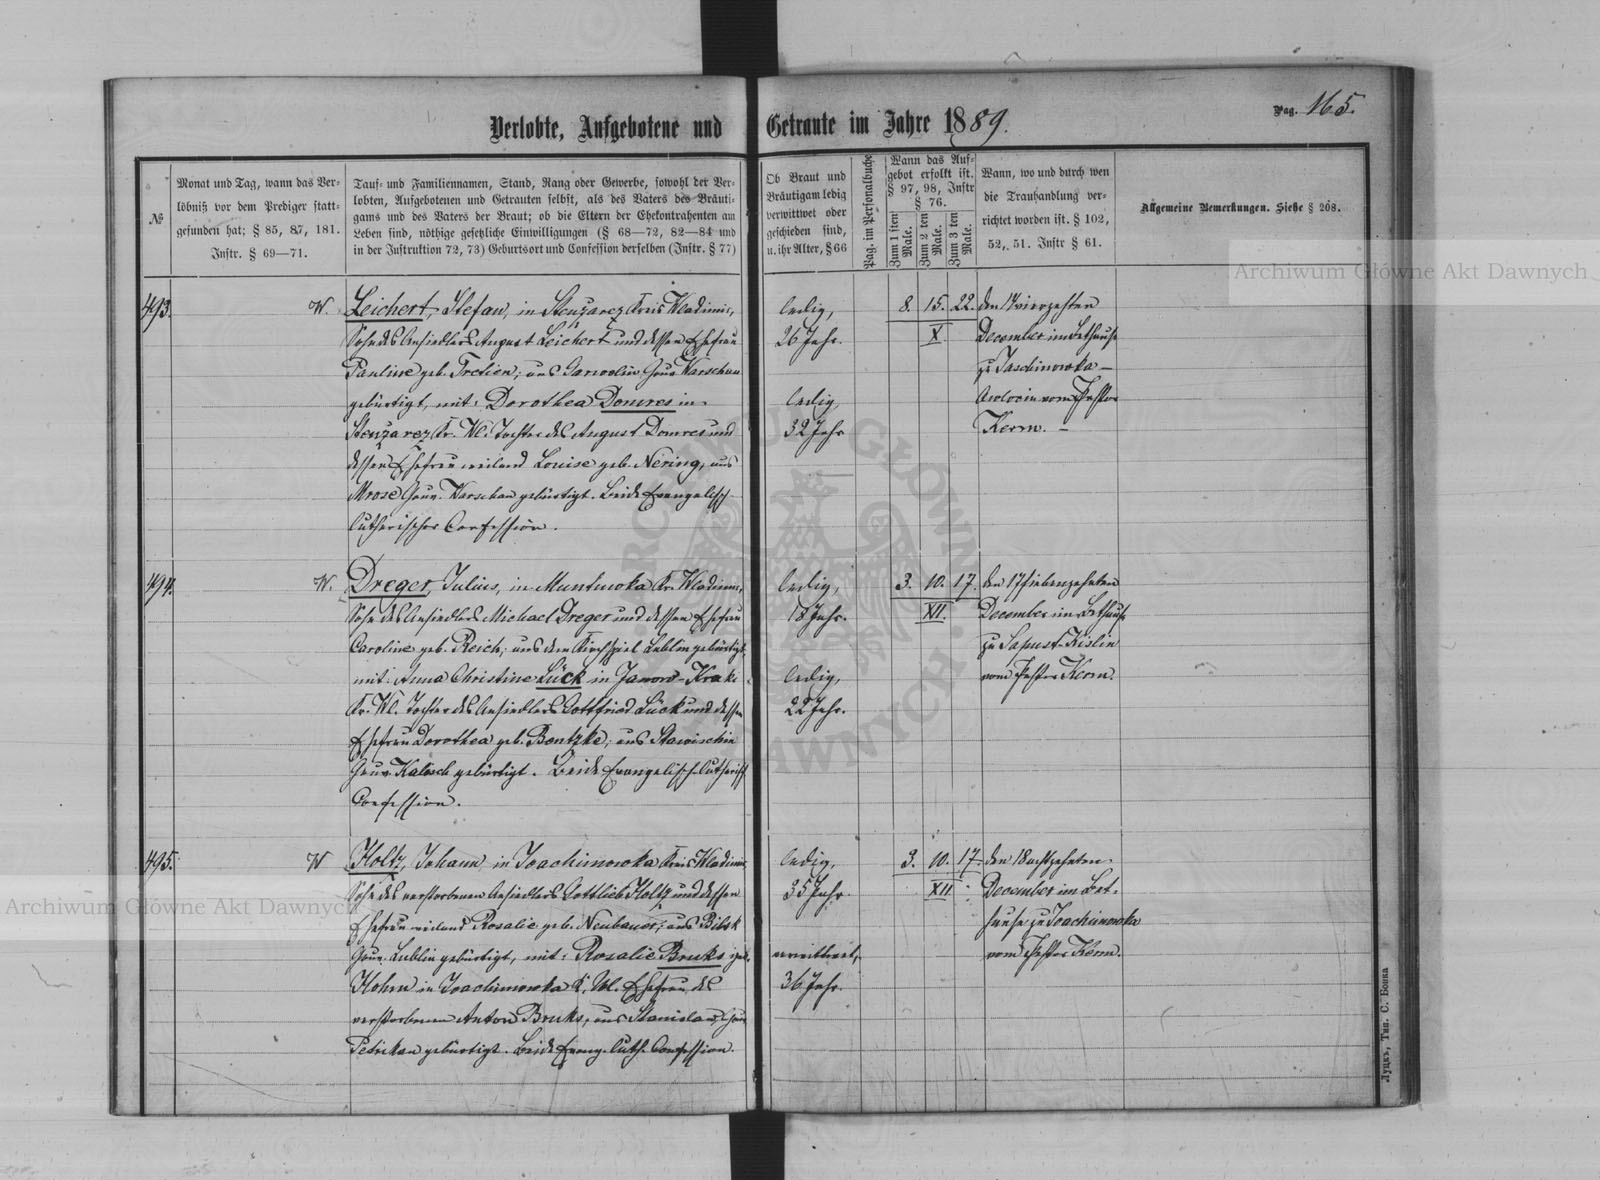 Verlobte, Aufgebotene und Getraute im Jahre 1889.
Pag. 165.
№
Monat und Tag, wann das Ver-
löbniß vor dem Prediger statt-
gefunden hat; § 85, 87, 181.
Instr. § 69—71.
Tauf- und Familiennamen, Stand, Rang oder Gewerbe, sowohl der Ver-
lobten, Aufgebotenen und Getrauten selbst, als des Vaters des Bräuti-
gams und des Vaters der Braut; ob die Eltern der Ehekontrahenten am
Leben sind, nöthige gesetzliche Einwilligungen (§ 68—72, 82—84 und
in der Instruktion 72, 73) Geburtsort und Confession derselben (Instr. § 77)
Ob Braut und
Bräutigam ledig
verwittwet oder
geschieden sind,
u. ihr Alter, § 66
Pag. im Personalbuche
Wann das Auf-
gebot erfolgt ist.
§ 97, 98, Instr
§ 76.
Zum 1 sten Male.
Zum 2 ten Male.
Zum 3 ten Male.
Wann, wo und durch wen
die Trauhandlung ver-
richtet worden ist. § 102,
52, 51. Instr § 61.
Allgemeine Bemerkungen. Siehe § 268.
Archiwum Główne Akt Dawnych
493.
W.
Leichert, Stefan, in Stenzarez Kreis Wladimir,
Sohn des Ansiedlers August Leichert und dessen Ehefrau
Pauline geb. Tretien; aus Garwolin Gouv Warschau
gebürtigt, mit: Dorothea Domres in
Stenzarez Kr. Wl. Tochter des August Domres und
dessen Ehefrau weiland Louise geb. Nering, aus
Mrose Gouv. Warschau gebürtigt. Beide Evangelisch-
lutherischer Confession.
ledig,
26 Jahr.
ledig,
32 Jahr
8. 15. 22.
X.
den 14 vierzehnten
December im Bethause
zu Jaschinowka –
vom Pastor
Kerm. –
494.
W.
Dreger, Julius, in Muntinoka Kr. Wladimir,
Sohn des Ansiedlers Michael Dreger und dessen Ehefrau
Caroline geb. Reich; aus dem Kirchspiel Lublin gebürtigt,
mit: Anna Christine Lück in Janow-Kraki
Kr. Wl. Tochter des Ansiedlers Gottfried Lück und dessen
Ehefrau Dorothea geb. Bentzke; aus Stawischin
Gouv. Kalisch gebürtigt. Beide Evangelisch-lutherisch
Confession.
ledig,
18 Jahr.
ledig,
22 Jahr.
3. 10. 17.
XII.
den 17 siebenzehnten
December im Bethause
zu Sapust-Kislin
vom Pastor Kerm.
495.
W
Holtz, Johann, in Joachimowka Kreis Wladimir
Sohn des verstorbenen Ansiedlers Gottlieb Holtz und dessen
Ehefrau weiland Rosalie geb. Neubauer; aus Bibsk
Gouv. Lublin gebürtigt, mit: Rosalie Bruks geb.
Hohm in Joachimowka K. Wl. Ehefrau des
verstorbenen Anton Bruks, aus Stanislau, Gouv
Petrikau gebürtigt. Beide Evang. luth. Confession.
ledig,
35 Jahr
verwittwet,
36 Jahr.
3. 10. 17
XII
den 18 achtzehnten
December im Bet-
hause zu Joachimowka
vom Pastor Kerm.
Archiwum Główne Akt Dawnych
Луцкъ, Тип. С. Бонка